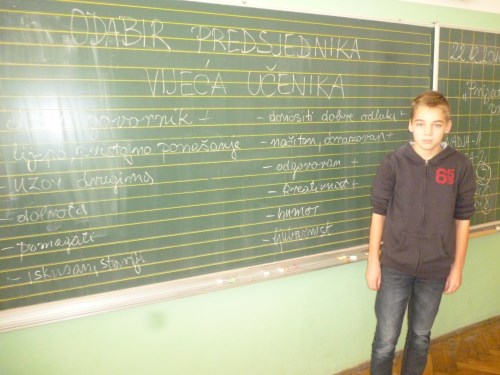 ODABIR PREDSJEDNIKA
VIJEĆA UČENIKA
- dobar govornik +
- lijepo, pristojno ponašanje
- uzor drugima
- dobrota
- pomagati
- iskusan, stariji
- donositi dobre odluke +
- načitan, obrazovan +
- odgovoran +
- kreativnost +
- humor
- mudrost
65